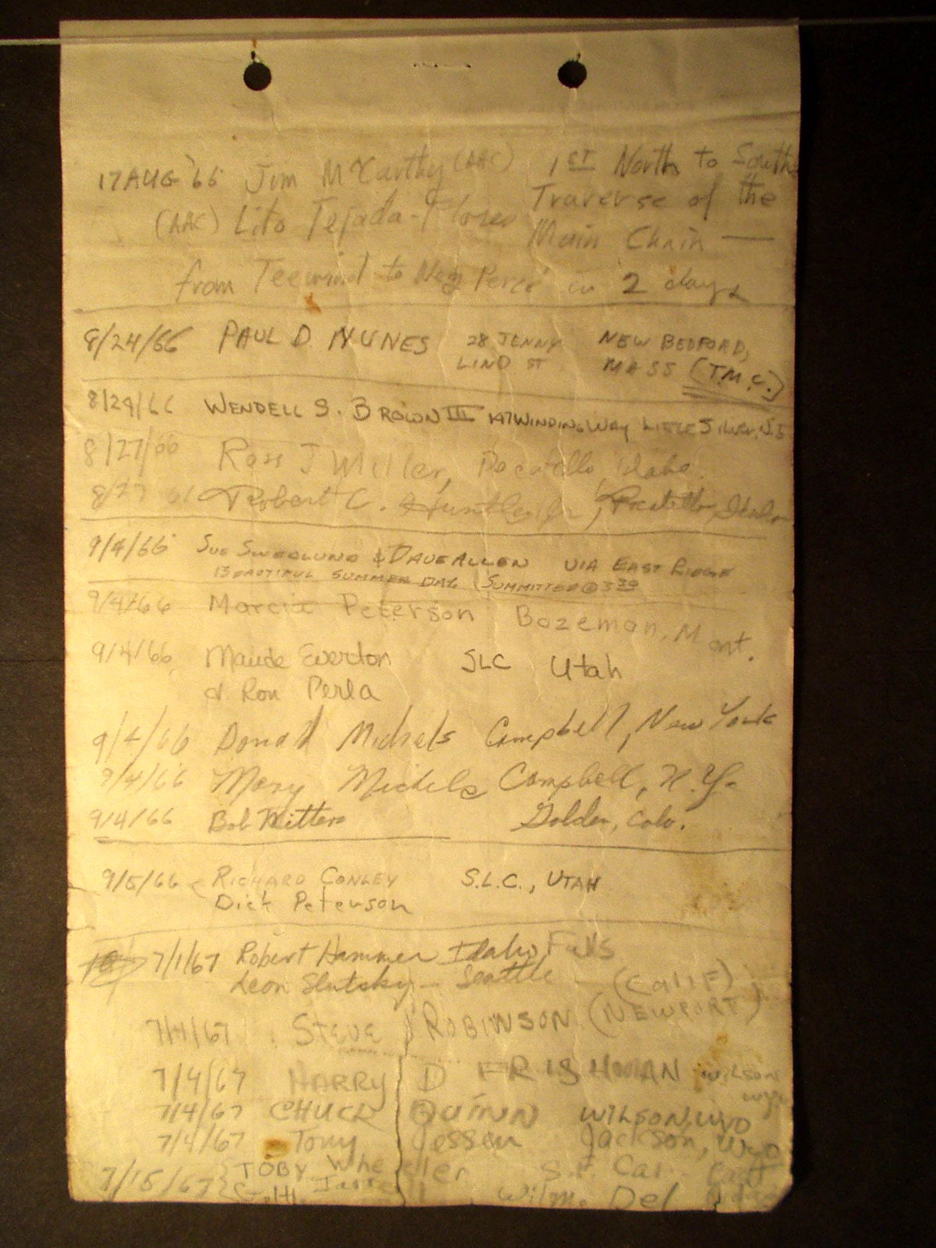 17 AUG '66 Jim McCarthy (AAC) 1ST North to South
(AAC) Lito Tejada-Flores Traverse of the
Main Chain —
from Teewinot to Nez Perce in 2 days
8/24/66 PAUL D. NUNES 28 JENNY LIND ST NEW BEDFORD, MASS (T.M.C.)
8/29/66 WENDELL S. BROWN III 147 WINDING WAY LITTLE SILVER, N.J.
8/27/66 Ross J Miller, Pocatello Idaho.
8/27 66 Robert C. Huntley Jr, Pocatello, Idaho
9/4/66 SUE SWEDLUND & DAVE ALLEN VIA EAST RIDGE
BEAUTIFUL SUMMER DAY SUMMITTED @ 3 30
9/4/66 Marcia Peterson Bozeman, Mont.
9/4/66 Maude Everton SLC Utah
& Ron Perla
9/4/66 Donald Michels Campbell, New York
9/4/66 Mary Michels Campbell, N.Y.
9/4/66 Bob Golden, Colo.
9/5/66 RICHARD CONLEY S.L.C., UTAH
Dick Peterson
7/1/67 Robert Hammer Idaho Falls
Leon Slutsky - Seattle
(CALIF)
7/1/67 STEVE ROBINSON (NEWPORT)
7/4/67 HARRY D FRISHMAN WILSON WYO
7/4/67 CHUCK QUINN WILSON, WYO
7/4/67 Tony Jessen Jackson, Wyo
7/15/67 TOBY Wheeler S.F. Cal.
Wilm. Del